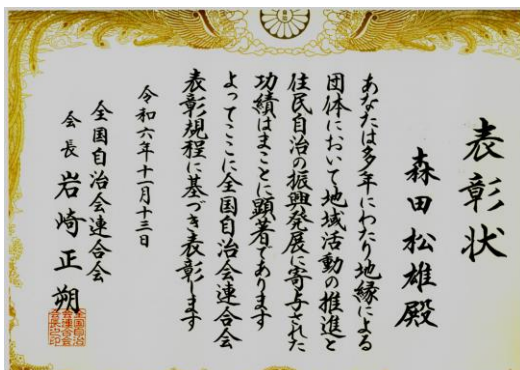 表彰状
森田松雄殿
あなたは多年にわたり地縁による
団体において地域活動の推進と
住民自治の振興発展に寄与された
功績はまことに顕著であります
よってここに全国自治会連合会
表彰規程に基づき表彰します
令和六年十一月十三日
全国自治会連合会
会長岩崎正朔
全国自治
会連合会
会長之印